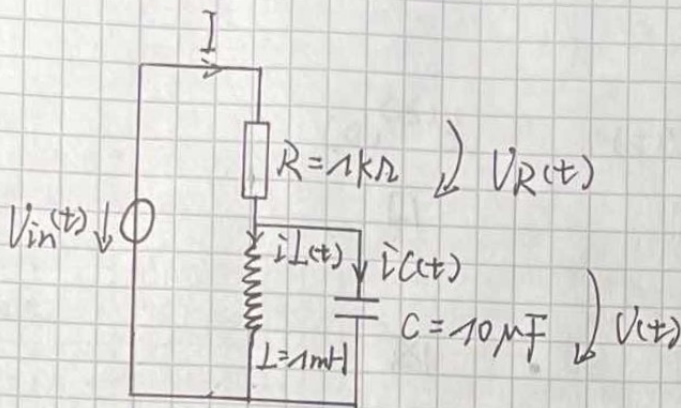 I
R = 1kΩ
VR(t)
Vin(t)
iL(t)
iC(t)
C = 10 μF
V(t)
L = 1mH